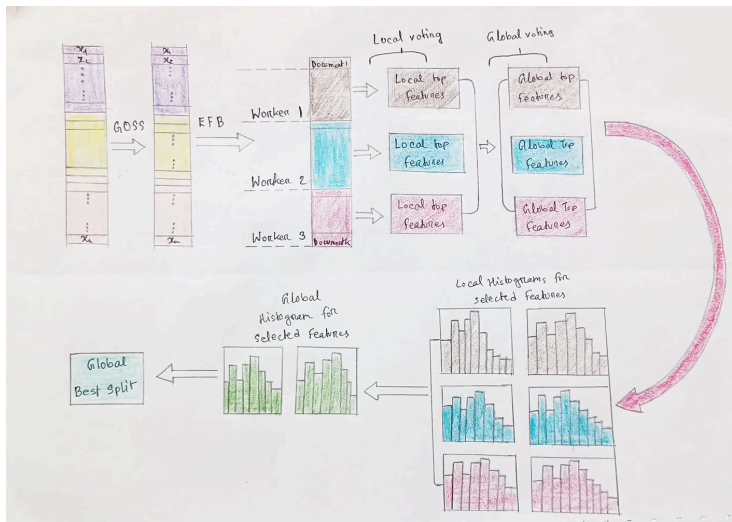 x1
x2
x1
x2
GOSS
EFB
xn
Document 1
Worker 1
Worker 2
Worker 3
Document k
Local voting
Global voting
Local top
features
Global top
features
Local top
features
Global Top
features
Local top
features
Global Top
Features
Local Histograms for
Selected Features
Global
Histogram for
Selected Features
Global
Best Split